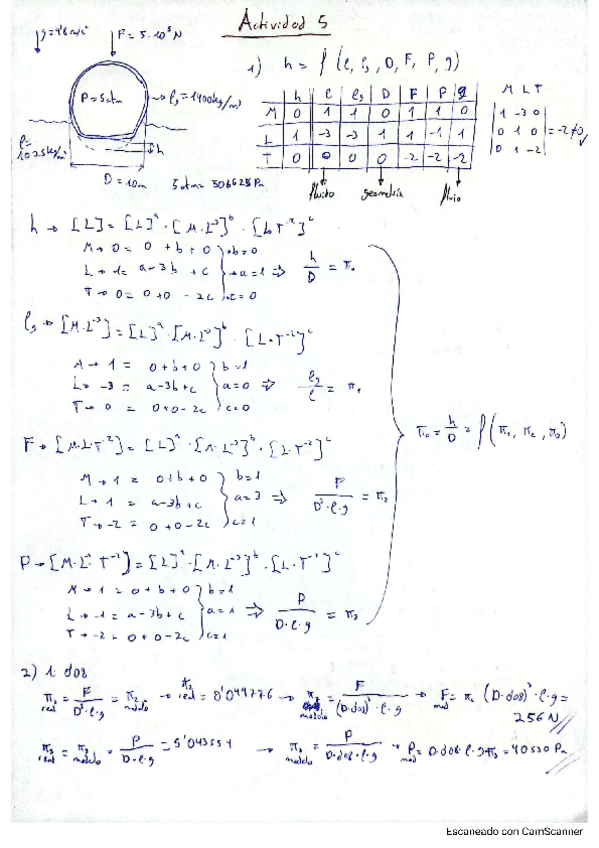 Actividad 5
g=9'8 m/s²
F = 5·10⁵ N
P=5atm
ρs=1400kg/m³
ρ= 1025kg/m³
h
D=10m
5atm= 506625 Pa
1) h = f (ρ, ρs, D, F, P, g)
h ρ ρs D F P g
M 0 1 1 0 1 1 0
L 1 -3 -3 1 1 -1 1
T 0 0 0 0 -2 -2 -2
fluido geometría flujo
M L T
1 -3 0
0 1 0
0 1 -2
= -2 ≠ 0
h → [L] = [L]ᵃ · [M·L⁻³]ᵇ · [L·T⁻²]ᶜ
M → 0 = 0 + b + 0 → b=0
L → 1 = a-3b + c → a=1 ⇒ h/D = π₀
T → 0 = 0+0 - 2c → c=0
ρs → [M·L⁻³] = [L]ᵃ · [M·L⁻³]ᵇ · [L·T⁻²]ᶜ
M → 1 = 0+b+0 b=1
L → -3 = a-3b+c a=0 ⇒ ρs/ρ = π₁
T → 0 = 0+0-2c c=0
π₀ = h/D = f(π₁, π₂, π₃)
F → [M·L·T⁻²] = [L]ᵃ · [M·L⁻³]ᵇ · [L·T⁻²]ᶜ
M → 1 = 0+b+0 b=1
L → 1 = a-3b+c a=3 ⇒ F/D³·ρ·g = π₂
T → -2 = 0+0-2c c=1
P → [M·L⁻¹·T⁻²] = [L]ᵃ · [M·L⁻³]ᵇ · [L·T⁻²]ᶜ
M → 1 = 0+b+0 b=1
L → -1 = a-3b+c a=1 ⇒ P/D·ρ·g = π₃
T → -2 = 0+0-2c c=1
2) 1: d08
π₂ real = F/D³·ρ·g = π₂ modelo → π₂ real = 0'049776 → π₂ modelo = F/(D·d08)³·ρ·g → F mod = π₂ (D·d08)³·ρ·g =
256 N
π₃ real = π₃ modelo = P/D·ρ·g = 5'043554 → π₃ modelo = P/D·d08·ρ·g → P mod = D·d08·ρ·g·π₃ = 40530 Pa
Escaneado con CamScanner